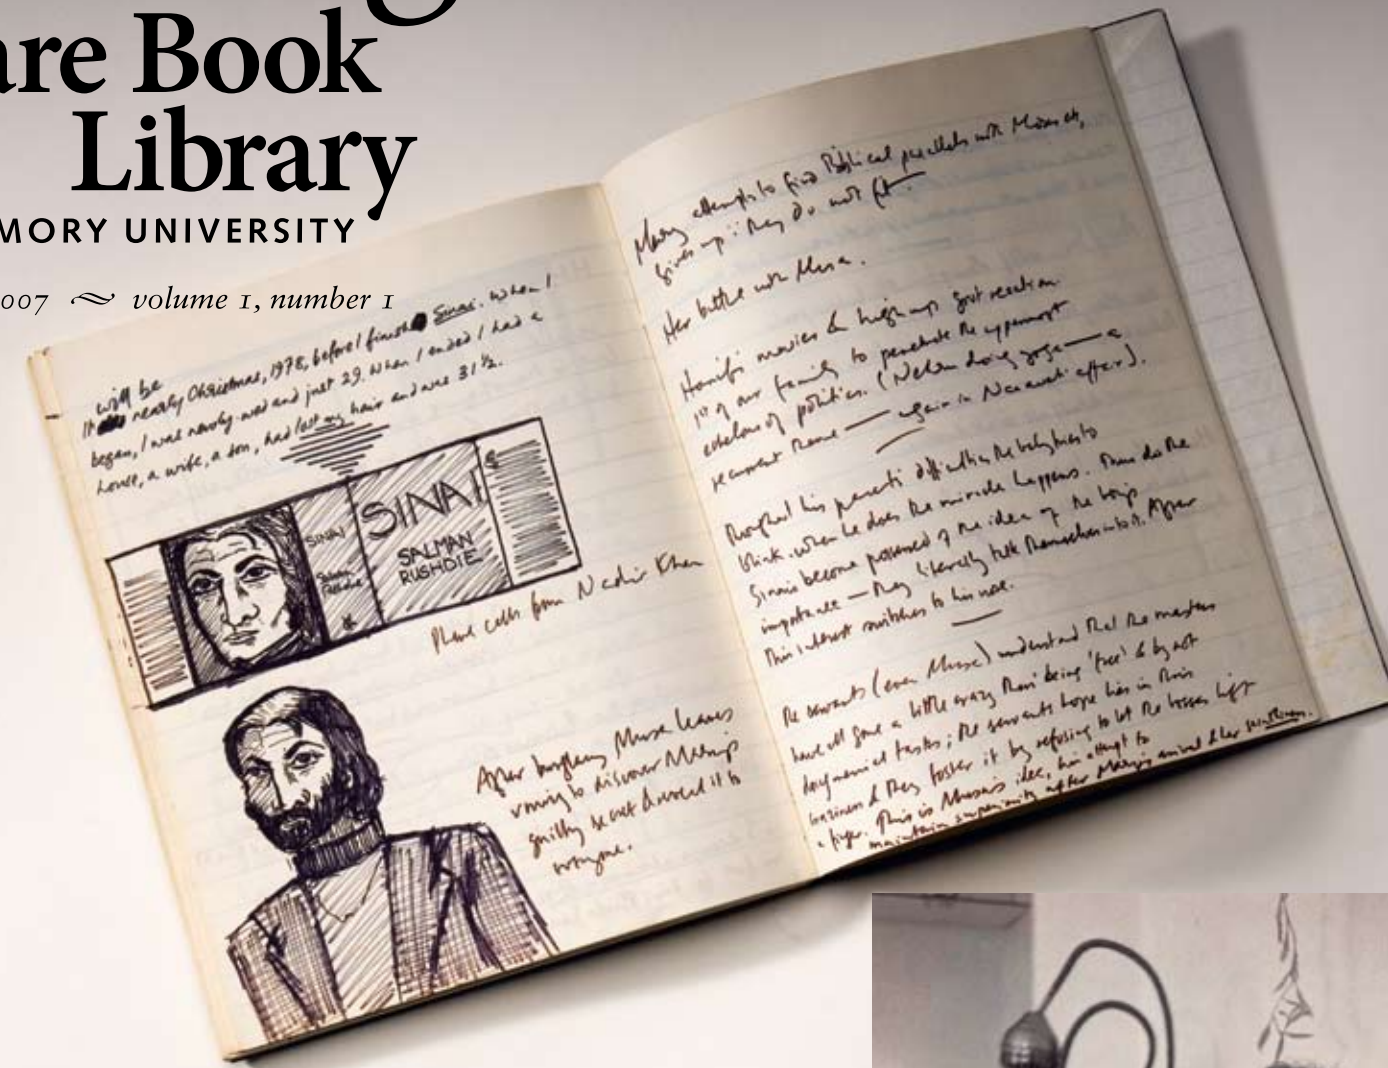 are Book
Library
MORY UNIVERSITY
007 ~ volume 1, number 1
will be
It nearly Christmas, 1978, before I finish Sinai. When I
began, I was newly-wed and just 29. When I ended I had a
house, a wife, a son, had lost my hair and was 31 ½.
SINAI
Salman
Rushdie
SINAI
SALMAN
RUSHDIE
Phone calls from Nadir Khan
After burglary Musa leaves
vowing to discover Mary's
guilty secret & reveal it to
everyone.
Mary attempts to find Biblical parallels with Moses etc,
gives up: they do not fit.
Her battle with Musa.
Hanif's movies & high-ups govt reaction.
1st of our family to penetrate the uppermost
echelons of politics. (Nehru doing yoga — a
recurrent theme — again in Nanavati affair).
Throughout his parents' difficulties the baby has to
blink. When he does the miracle happens. Then do the
Sinais become possessed of the idea of the boy's
importance — they literally talk themselves into it. After
this interest switches to his nose.
The servants (even Musa) understand that the masters
have all gone a little crazy from being 'free' & by not
doing menial tasks; the servants' hope lies in this
laziness & they foster it by refusing to let the bosses lift
a finger. This is Musa's idea, his attempt to
maintain superiority after Mary's arrival & her